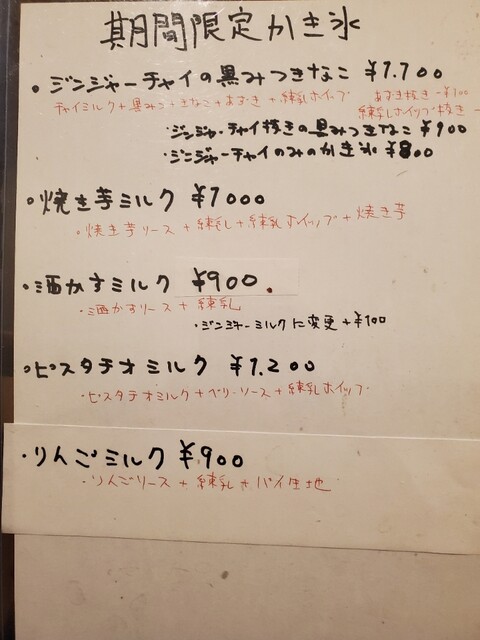 期間限定かき氷
・ジンジャーチャイの黒みつきなこ ¥1.100
チャイミルク+黒みつ+きなこ+あずき+練乳ホイップ あずき抜き-¥100
練乳ホイップ抜き-
・ジンジャーチャイ抜きの黒みつきなこ ¥900
・ジンジャーチャイのみのかき氷 ¥800
・焼き芋ミルク ¥1000
・焼き芋ソース+練乳+練乳ホイップ+焼き芋
・酒かすミルク ¥900.
・酒かすソース+練乳
・ジンジャーミルクに変更+¥100
・ピスタチオミルク ¥1.200
・ピスタチオミルク+ベリーソース+練乳ホイップ
・りんごミルク ¥900
・りんごソース+練乳+パイ生地